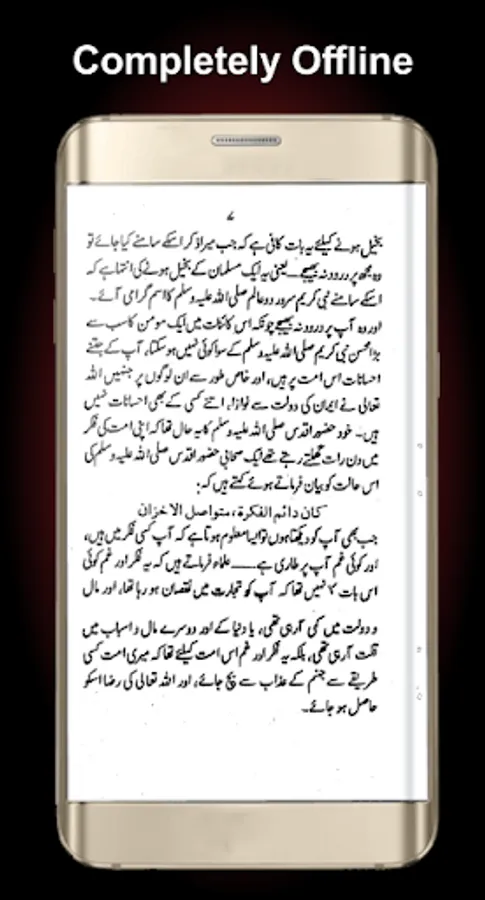 Completely Offline
۷
بخیل ہونے کیلئے یہ بات کافی ہے کہ جب میرا ذکر اسکے سامنے کیا جائے تو
وہ مجھ پر درود نہ بھیجے۔ یعنی یہ ایک مسلمان کے بخیل ہونے کی انتہا ہے کہ
اسکے سامنے نبی کریم سرور دو عالم صلی اللہ علیہ وسلم کا اسم گرامی آئے۔
اور وہ آپ پر درود نہ بھیجے چونکہ اس کائنات میں ایک مومن کا سب سے
بڑا محسن نبی کریم صلی اللہ علیہ وسلم کے سوا کوئی نہیں ہو سکتا، آپ کے جتنے
احسانات اس امت پر ہیں، اور خاص طور سے ان لوگوں پر جنہیں اللہ
تعالی نے ایمان کی دولت سے نوازا، اتنے کسی کے بھی احسانات نہیں
ہیں۔ خود حضور اقدس صلی اللہ علیہ وسلم کا یہ حال تھا کہ اپنی امت کی فکر
میں دن رات گھلتے رہتے تھے ایک صحابی حضور اقدس صلی اللہ علیہ وسلم کی
اس حالت کو بیان فرماتے ہوئے کہتے ہیں کہ:
کان دائم الفکرة، متواصل الاحزان
جب بھی آپ کو دیکھتا ہوں تو ایسا معلوم ہوتا ہے کہ آپ کسی فکر میں ہیں،
اور کوئی غم آپ پر طاری ہے۔ علماء فرماتے ہیں کہ یہ فکر اور غم کوئی
اس بات کا نہیں تھا کہ آپ کو تجارت میں نقصان ہو رہا تھا، اور مال
و دولت میں کمی آرہی تھی، یا دنیا کے اور دوسرے مال و اسباب میں
قلت آرہی تھی، بلکہ یہ فکر اور غم اس امت کیلئے تھا کہ میری امت کسی
طریقے سے جہنم کے عذاب سے بچ جائے، اور اللہ تعالی کی رضا اسکو
حاصل ہو جائے۔